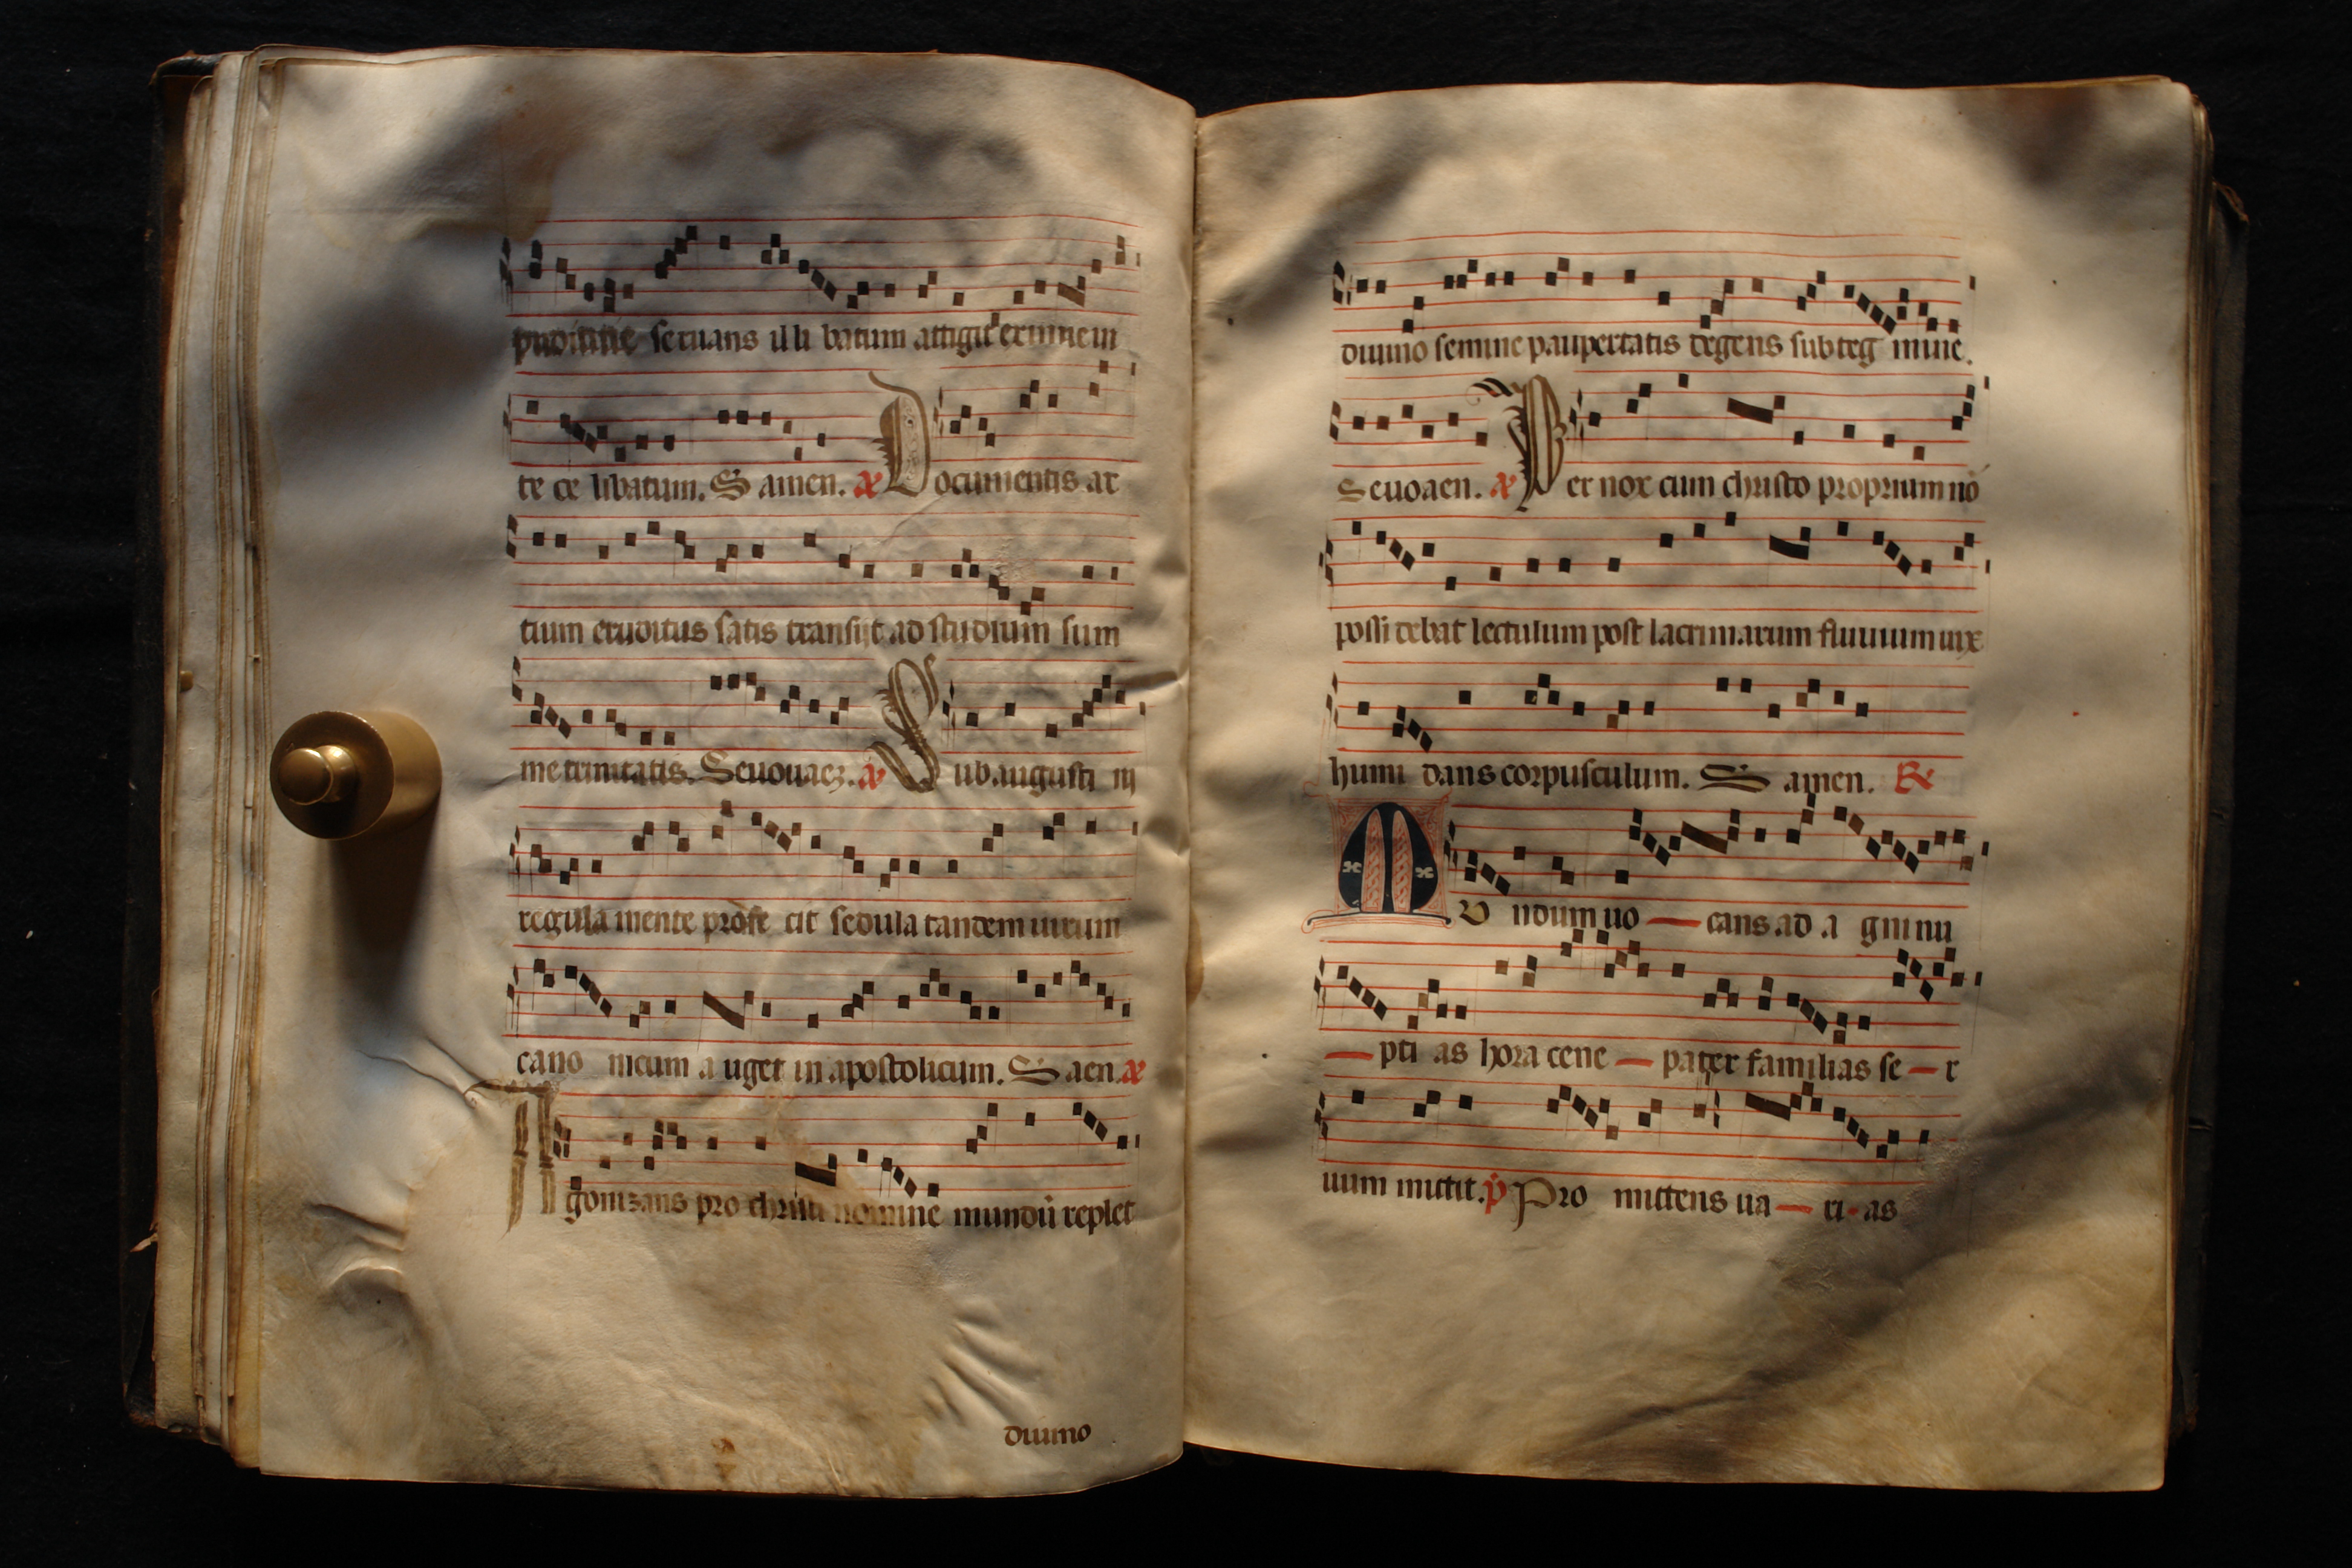 pudicitie seruans illi batum attigit eximie in
te ce libatum. S amen. a Documentis ar
tium eruditus satis transijt ad studium sum
me trinitatis. Seuouaez. a Sub augusti ni
regula mente profe cit sedula tandem uirum
cano nicum a uget in apostolicum. S aen. a
Agonizans pro christi nomine mundū replet
diuino
diuino semine paupertatis degens sub teg mine.
Seuoaen. a Per nox cum christo proprium nō
possi debat lectulum post lacrimarum fluuium uix
humi dans corpusculum. S amen. R
Mundum uo — cans ad a gni nu
— pti as hora cene — pater familias se — r
uum mittit. p Pro mittens ua — ri - as